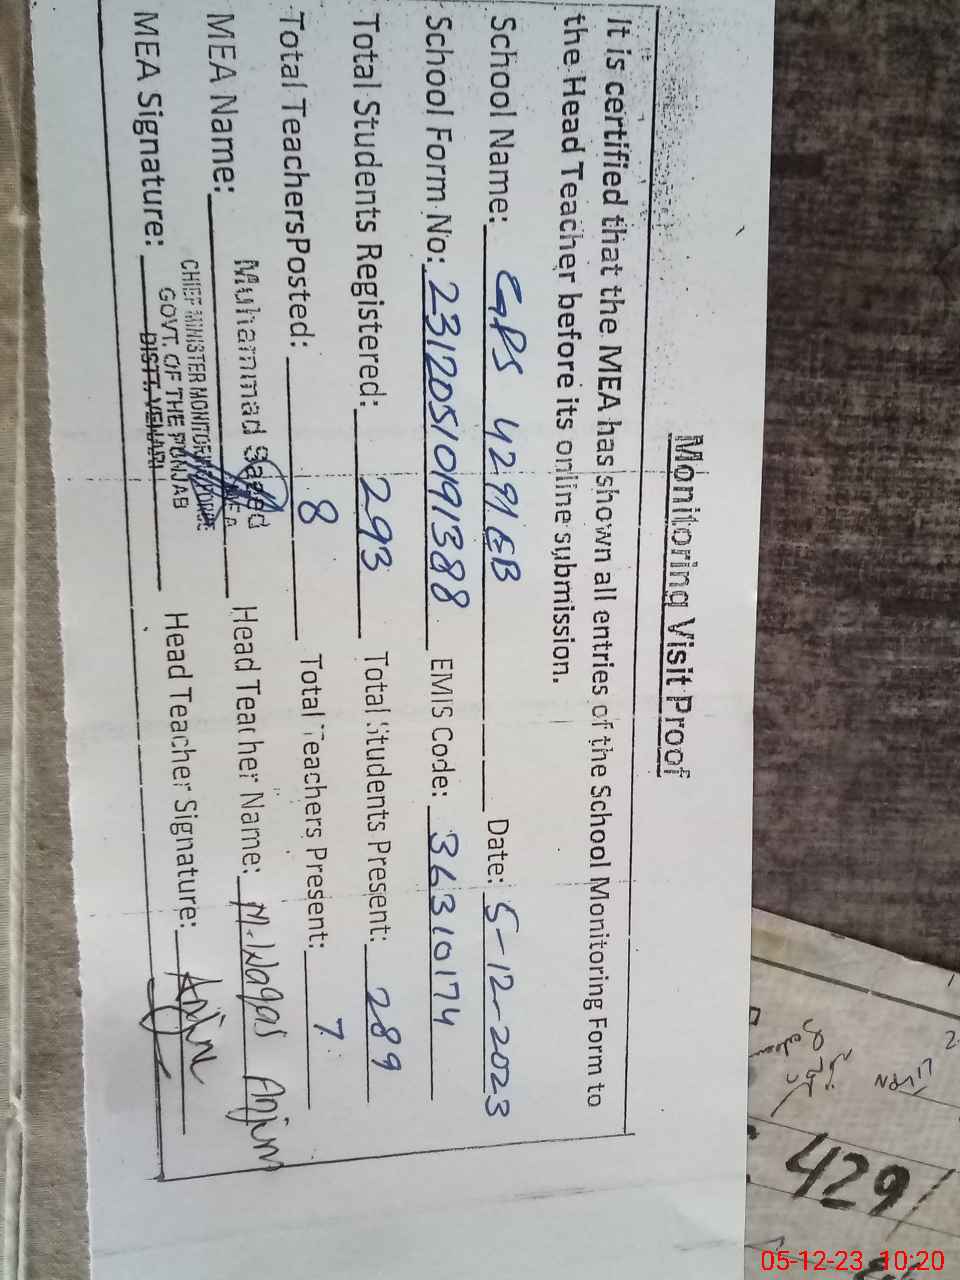 Monitoring Visit Proof
It is certified that the MEA has shown all entries of the School Monitoring Form to
the Head Teacher before its online submission.
School Name: GPS 429/EB Date: 5-12-2023
School Form No: 23120510191388 EMIS Code: 36310174
Total Students Registered: 293 Total Students Present: 289
Total TeachersPosted: 8 Total Teachers Present: 7
MEA Name: Muhammad Saeed Head Teacher Name: M. Waqas Anjum
MEA
CHIEF MINISTER MONITORING FORCE
GOVT. OF THE PUNJAB
DISTT. VEHARI
MEA Signature: Head Teacher Signature: Anjum
429/
05-12-23 10:20